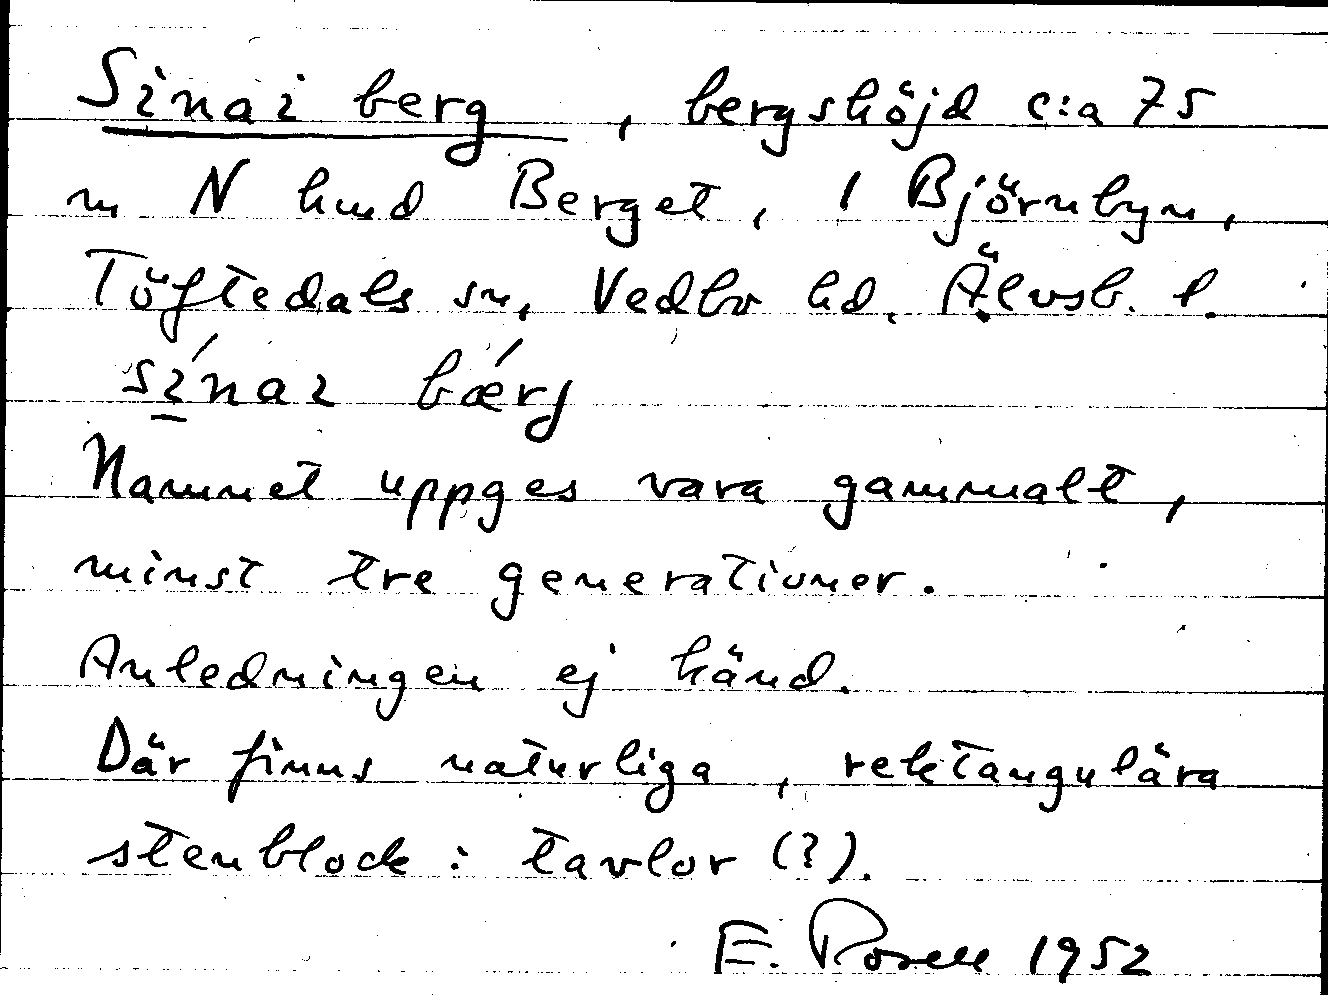 Sinai berg, bergshöjd c:a 75
m N hmd Berget, 1 Björnbyn,
Töftedals sn, Vedbo hd. Älvsb. l.
sínai bǽrj
Namnet uppges vara gammalt,
minst tre generationer.
Anledningen ej känd.
Där finns naturliga, rektangulära
stenblock: tavlor (?).
E. Rosell 1952